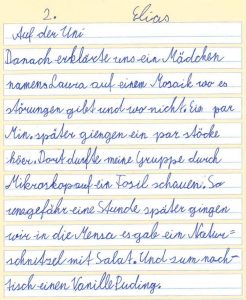 2. Elias
Auf der Uni
Danach erklärte uns ein Mädchen
namens Laura auf einem Mosaik wo es
störungen gibt und wo nicht. Ein par
Min. später giengen ein par stöcke
höer. Dort durfte meine Gruppe durch
Mikroskop auf ein Fosil schauen. So
unegefähr eine Stunde später gingen
wir in die Mensa es gab ein Natur-
schnitzel mit Salat. Und zum nach-
tisch einen Vanille Puding.